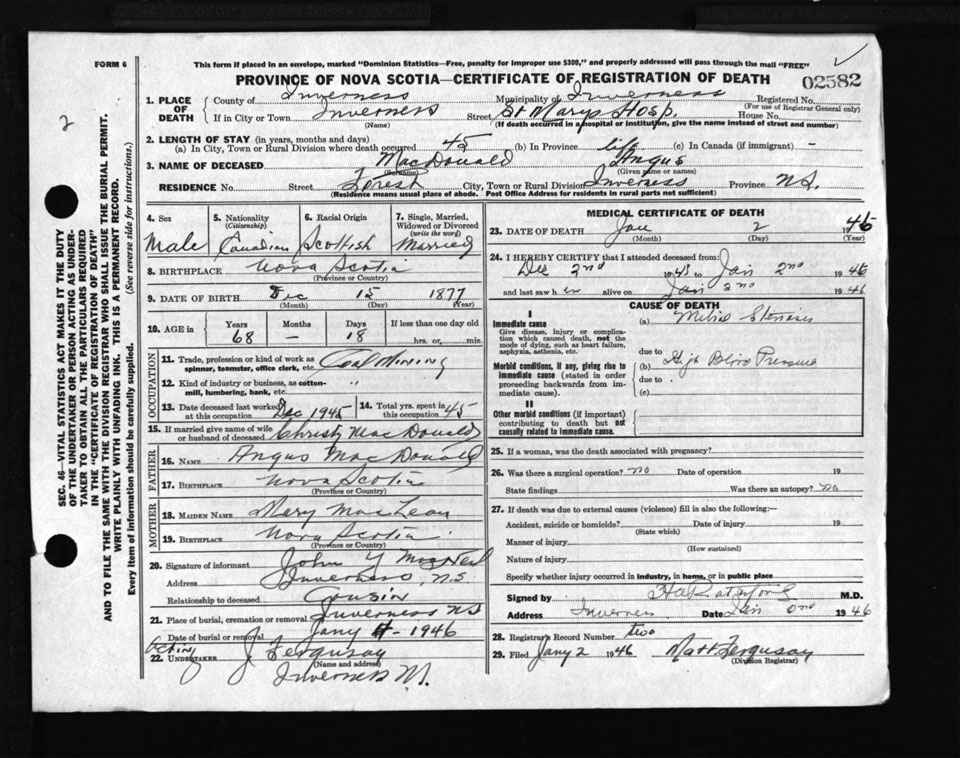 FORM 6
This form if placed in an envelope, marked "Dominion Statistics—Free, penalty for improper use $300," and properly addressed will pass through the mail "FREE"
PROVINCE OF NOVA SCOTIA—CERTIFICATE OF REGISTRATION OF DEATH
02582
2
SEC. 46—VITAL STATISTICS ACT MAKES IT THE DUTY
OF THE UNDERTAKER OR PERSON ACTING AS UNDER-
TAKER TO OBTAIN ALL THE PARTICULARS REQUIRED
IN THE "CERTIFICATE OF REGISTRATION OF DEATH"
AND TO FILE THE SAME WITH THE DIVISION REGISTRAR WHO SHALL ISSUE THE BURIAL PERMIT.
WRITE PLAINLY WITH UNFADING INK. THIS IS A PERMANENT RECORD.
Every item of information should be carefully supplied. (See reverse side for instructions.)
1. PLACE OF DEATH County of Inverness Municipality of Inverness Registered No.
(For use of Registrar General only)
If in City or Town Inverness Street St Marys Hosp. House No.
(Name) (If death occurred in a hospital or institution, give the name instead of street and number)
2. LENGTH OF STAY (in years, months and days)
(a) In City, Town or Rural Division where death occurred 45 (b) In Province life (c) In Canada (if immigrant) -
3. NAME OF DECEASED MacDonald Angus
(Surname) (Given name or names)
RESIDENCE No. Street Forest City, Town or Rural Division Inverness Province N.S.
(Residence means usual place of abode. Post Office Address for residents in rural parts not sufficient)
4. Sex Male
5. Nationality (Citizenship) Canadian
6. Racial Origin Scottish
7. Single, Married, Widowed or Divorced (write the word) Married
8. BIRTHPLACE Nova Scotia
(Province or Country)
9. DATE OF BIRTH Dec 15 1877
(Month) (Day) (Year)
10. AGE in Years 68 Months — Days 18 If less than one day old
hrs. or min.
OCCUPATION
11. Trade, profession or kind of work as spinner, teamster, office clerk, etc. Coal Mining
12. Kind of industry or business, as cotton-mill, lumbering, bank, etc. "
13. Date deceased last worked at this occupation Dec 1945
14. Total yrs. spent in this occupation 45
15. If married give name of wife or husband of deceased Christy MacDonald
FATHER
16. NAME Angus MacDonald
17. BIRTHPLACE Nova Scotia
(Province or Country)
MOTHER
18. MAIDEN NAME Mary MacLean
19. BIRTHPLACE Nova Scotia
(Province or Country)
20. Signature of informant John Y MacNeil
Address Inverness, N.S.
Relationship to deceased Cousin
21. Place of burial, cremation or removal Inverness NS
Date of burial or removal Jany 4 - 1946
Acting
22. UNDERTAKER J Ferguson
(Name and address)
Inverness
MEDICAL CERTIFICATE OF DEATH
23. DATE OF DEATH Jan 2 1946
(Month) (Day) (Year)
24. I HEREBY CERTIFY that I attended deceased from:
Dec 2nd 1945 to Jan 2nd 1946
and last saw h im alive on Jan 2nd 1946
CAUSE OF DEATH
I
Immediate cause
Give disease, injury or complication which caused death, not the mode of dying, such as heart failure, asphyxia, asthenia, etc.
(a) Mitral Stenosis
due to
Morbid conditions, if any, giving rise to immediate cause (stated in order proceeding backwards from immediate cause).
(b) High Blood Pressure
due to
(c)
II
Other morbid conditions (if important) contributing to death but not causally related to immediate cause.
25. If a woman, was the death associated with pregnancy?
26. Was there a surgical operation? no Date of operation 19
State findings Was there an autopsy? no
27. If death was due to external causes (violence) fill in also the following:—
Accident, suicide or homicide? Date of injury 19
(State which)
Manner of injury
(How sustained)
Nature of injury
Specify whether injury occurred in industry, in home, or in public place
Signed by M.D.
Address Inverness Date Jan 2nd 1946
28. Registrar's Record Number two
29. Filed Jany 2 1946 Matt Ferguson
(Division Registrar)